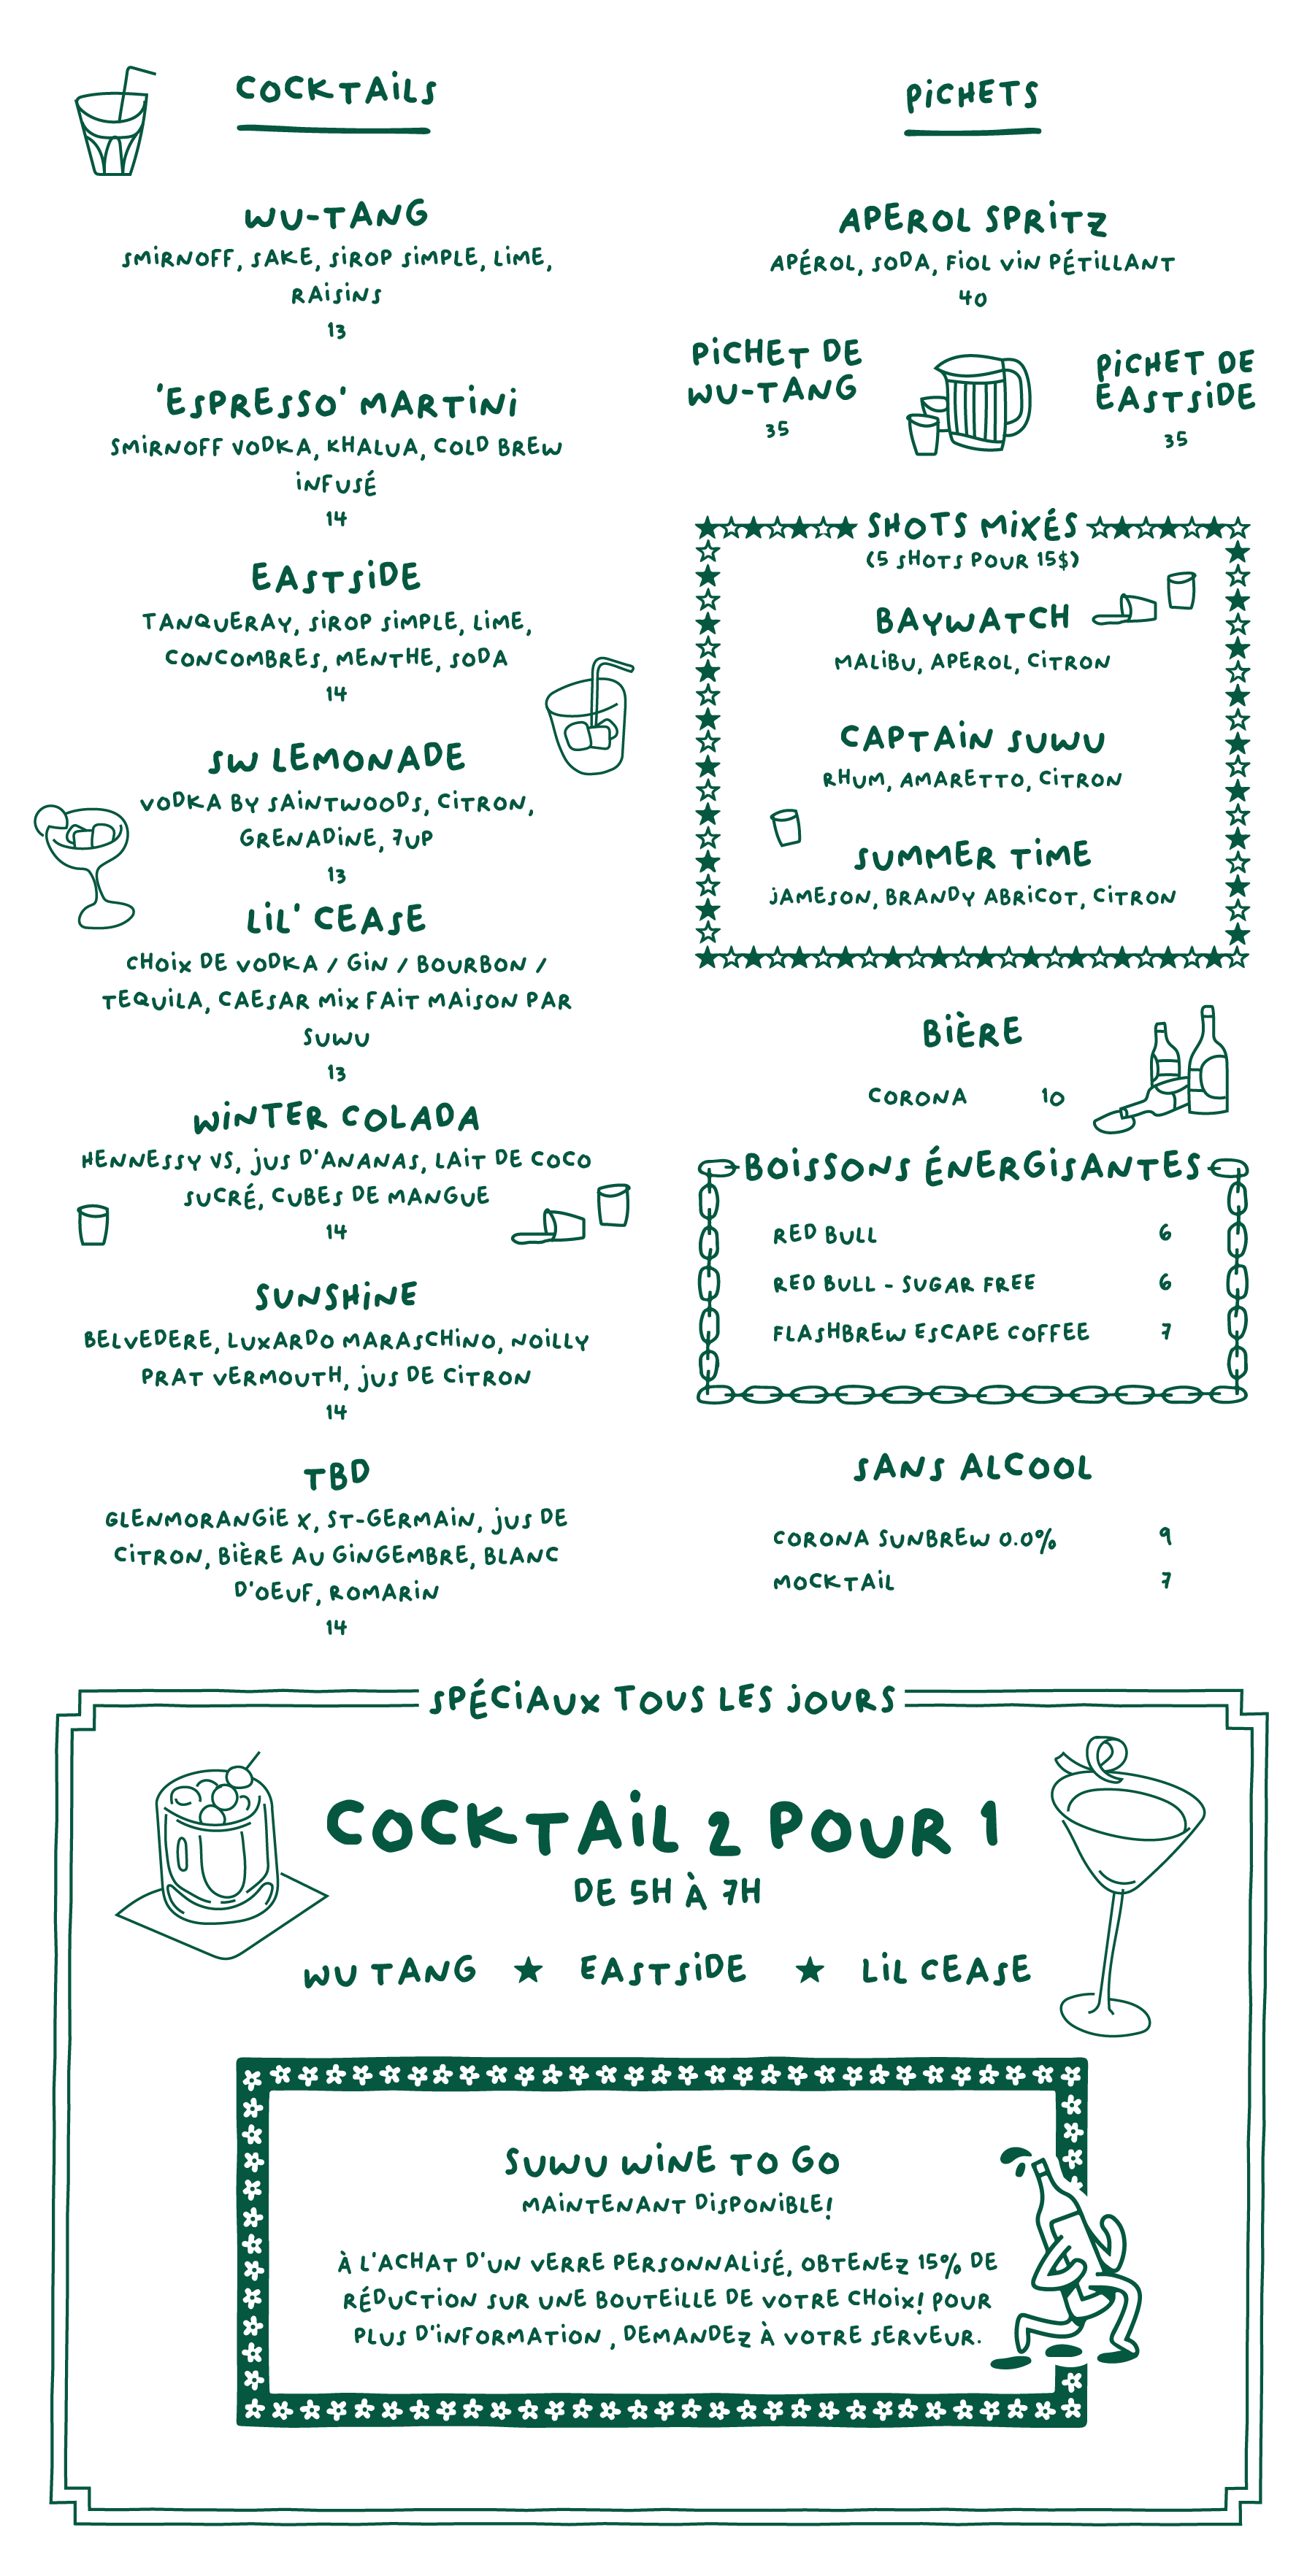 COCKTAILS
WU-TANG
SMIRNOFF, SAKE, SIROP SIMPLE, LIME,
RAISINS
13
'ESPRESSO' MARTINI
SMIRNOFF VODKA, KHALUA, COLD BREW
INFUSÉ
14
EASTSIDE
TANQUERAY, SIROP SIMPLE, LIME,
CONCOMBRES, MENTHE, SODA
14
SW LEMONADE
VODKA BY SAINTWOODS, CITRON,
GRENADINE, 7UP
13
LIL' CEASE
CHOIX DE VODKA / GIN / BOURBON /
TEQUILA, CAESAR MIX FAIT MAISON PAR
SUWU
13
WINTER COLADA
HENNESSY VS, JUS D'ANANAS, LAIT DE COCO
SUCRÉ, CUBES DE MANGUE
14
SUNSHINE
BELVEDERE, LUXARDO MARASCHINO, NOILLY
PRAT VERMOUTH, JUS DE CITRON
14
TBD
GLENMORANGIE X, ST-GERMAIN, JUS DE
CITRON, BIÈRE AU GINGEMBRE, BLANC
D'OEUF, ROMARIN
14
PICHETS
APEROL SPRITZ
APÉROL, SODA, FIOL VIN PÉTILLANT
40
PICHET DE
WU-TANG
35
PICHET DE
EASTSIDE
35
SHOTS MIXÉS
(5 SHOTS POUR 15$)
BAYWATCH
MALIBU, APEROL, CITRON
CAPTAIN SUWU
RHUM, AMARETTO, CITRON
SUMMER TIME
JAMESON, BRANDY ABRICOT, CITRON
BIÈRE
CORONA 10
BOISSONS ÉNERGISANTES
RED BULL 6
RED BULL - SUGAR FREE 6
FLASHBREW ESCAPE COFFEE 7
SANS ALCOOL
CORONA SUNBREW 0.0% 9
MOCKTAIL 7
SPÉCIAUX TOUS LES JOURS
COCKTAIL 2 POUR 1
DE 5H À 7H
WU TANG ★ EASTSIDE ★ LIL CEASE
SUWU WINE TO GO
MAINTENANT DISPONIBLE!
À L'ACHAT D'UN VERRE PERSONNALISÉ, OBTENEZ 15% DE
RÉDUCTION SUR UNE BOUTEILLE DE VOTRE CHOIX! POUR
PLUS D'INFORMATION , DEMANDEZ À VOTRE SERVEUR.